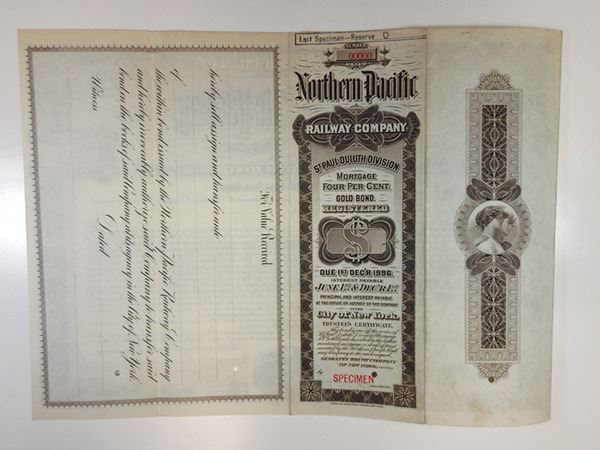 For Value Received
hereby sell assign and transfer unto
of
the within Bond issued by the Northern Pacific Railway Company
and hereby irrevocably authorize said Company to transfer said
bond on the books of said Company at its agency in the City of New York.
Dated
Witness
Last Specimen—Reserve 0
NUMBER
00000
Northern Pacific
RAILWAY COMPANY
ST PAUL-DULUTH DIVISION
MORTGAGE
FOUR PER CENT.
GOLD BOND.
REGISTERED
$
DUE 1ST DEC'R 1996.
INTEREST PAYABLE
JUNE 1ST & DEC'R 1ST
PRINCIPAL AND INTEREST PAYABLE
AT THE OFFICE OR AGENCY OF THE COMPANY
IN THE
City of New York.
TRUSTEE'S CERTIFICATE.
GUARANTY TRUST COMPANY
OF NEW YORK,
By
SPECIMEN